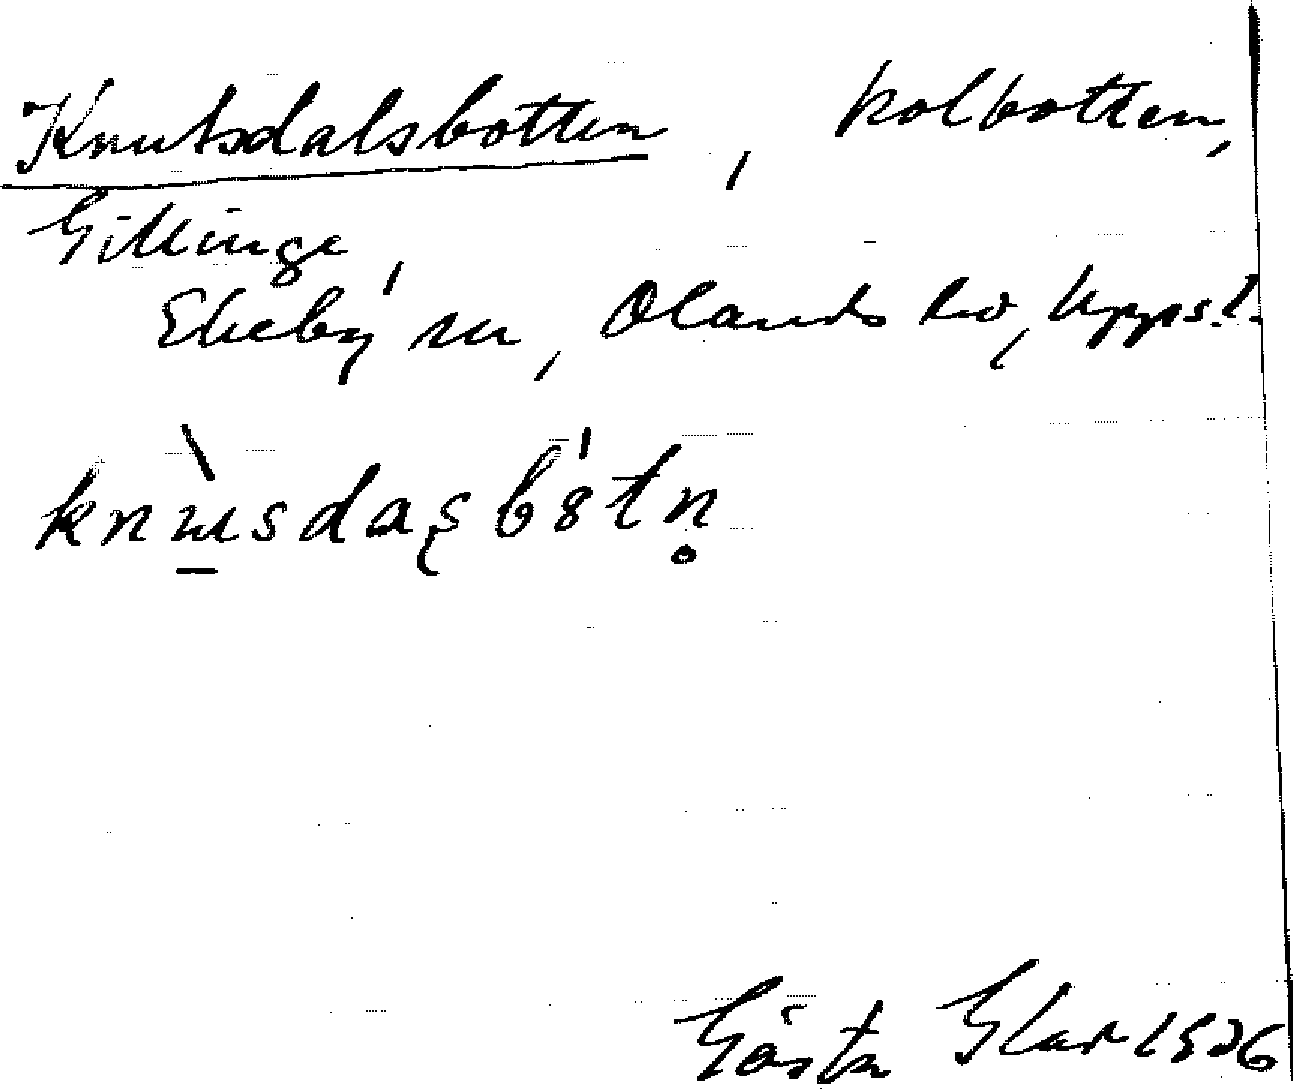 Knutsdalsbotten, kolbotten,
Gillinge,
Ekeby sn, Olands hd, Upps. l.
knɯ̠̀sdaʂbˈ8tn̥
Gösta Glar 1926